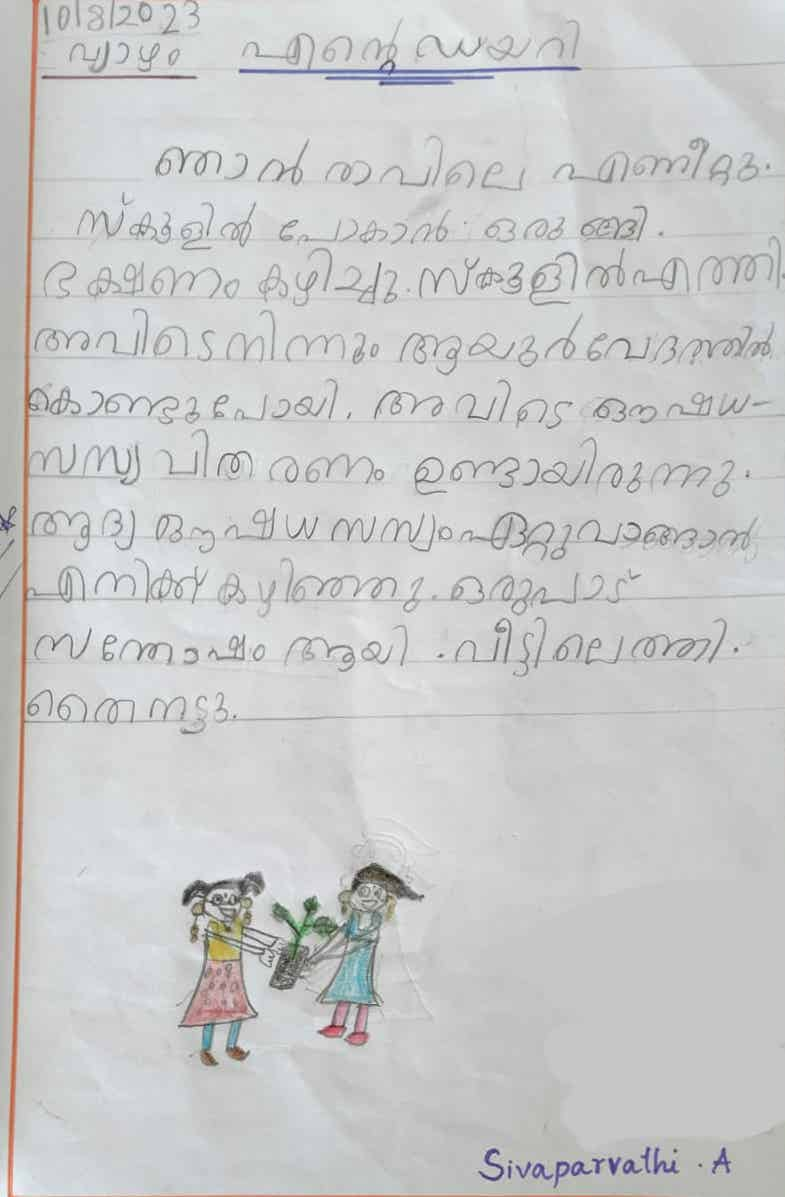 10/8/2023
വ്യാഴം എന്റെ ഡയറി
ഞാൻ രാവിലെ എണീറ്റു.
സ്കൂളിൽ പോകാൻ ഒരുങ്ങി.
ഭക്ഷണം കഴിച്ചു. സ്കൂളിൽ എത്തി.
അവിടെ നിന്നും ആയുർവേദത്തിൽ
കൊണ്ടുപോയി. അവിടെ ഔഷധ-
സസ്യ വിതരണം ഉണ്ടായിരുന്നു.
ആദ്യ ഔഷധ സസ്യം ഏറ്റുവാങ്ങാൻ
എനിക്ക് കഴിഞ്ഞു. ഒരുപാട്
സന്തോഷം ആയി. വീട്ടിലെത്തി.
തൈ നട്ടു.
Sivaparvathi. A